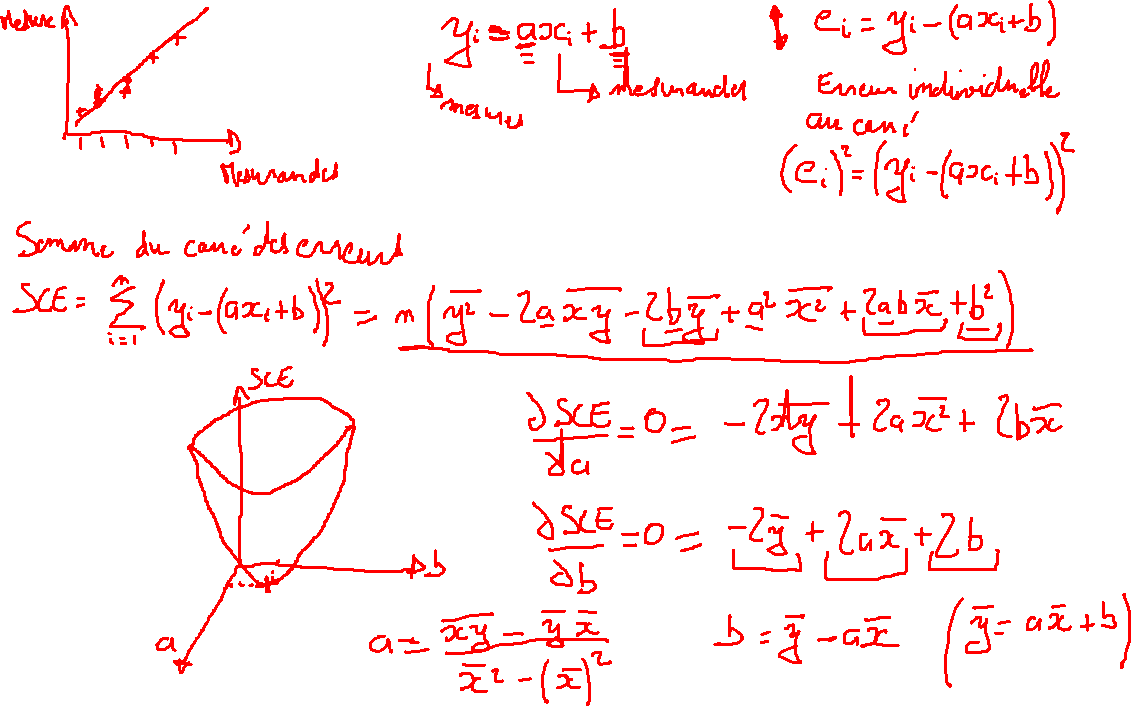 Mesure
Mesurandes
yi = axi + b
mesures
mesurandes
ei = yi - (axi + b)
Erreur individuelle
au carré
(ei)² = (yi - (axi + b))²
Somme du carré des erreurs
SCE = Σ_{i=1}^{n} (yi - (axi + b))² = n(y̅²̅ - 2a x̅y̅ - 2b y̅ + a² x̅²̅ + 2ab x̅ + b²)
SCE
b
a
∂SCE/∂a = 0 = -2x̅y̅ + 2a x̅²̅ + 2b x̅
∂SCE/∂b = 0 = -2y̅ + 2a x̅ + 2b
a = (x̅y̅ - y̅ x̅)/(x̅² - (x̅)²)
b = y̅ - a x̅ (y̅ = a x̅ + b)